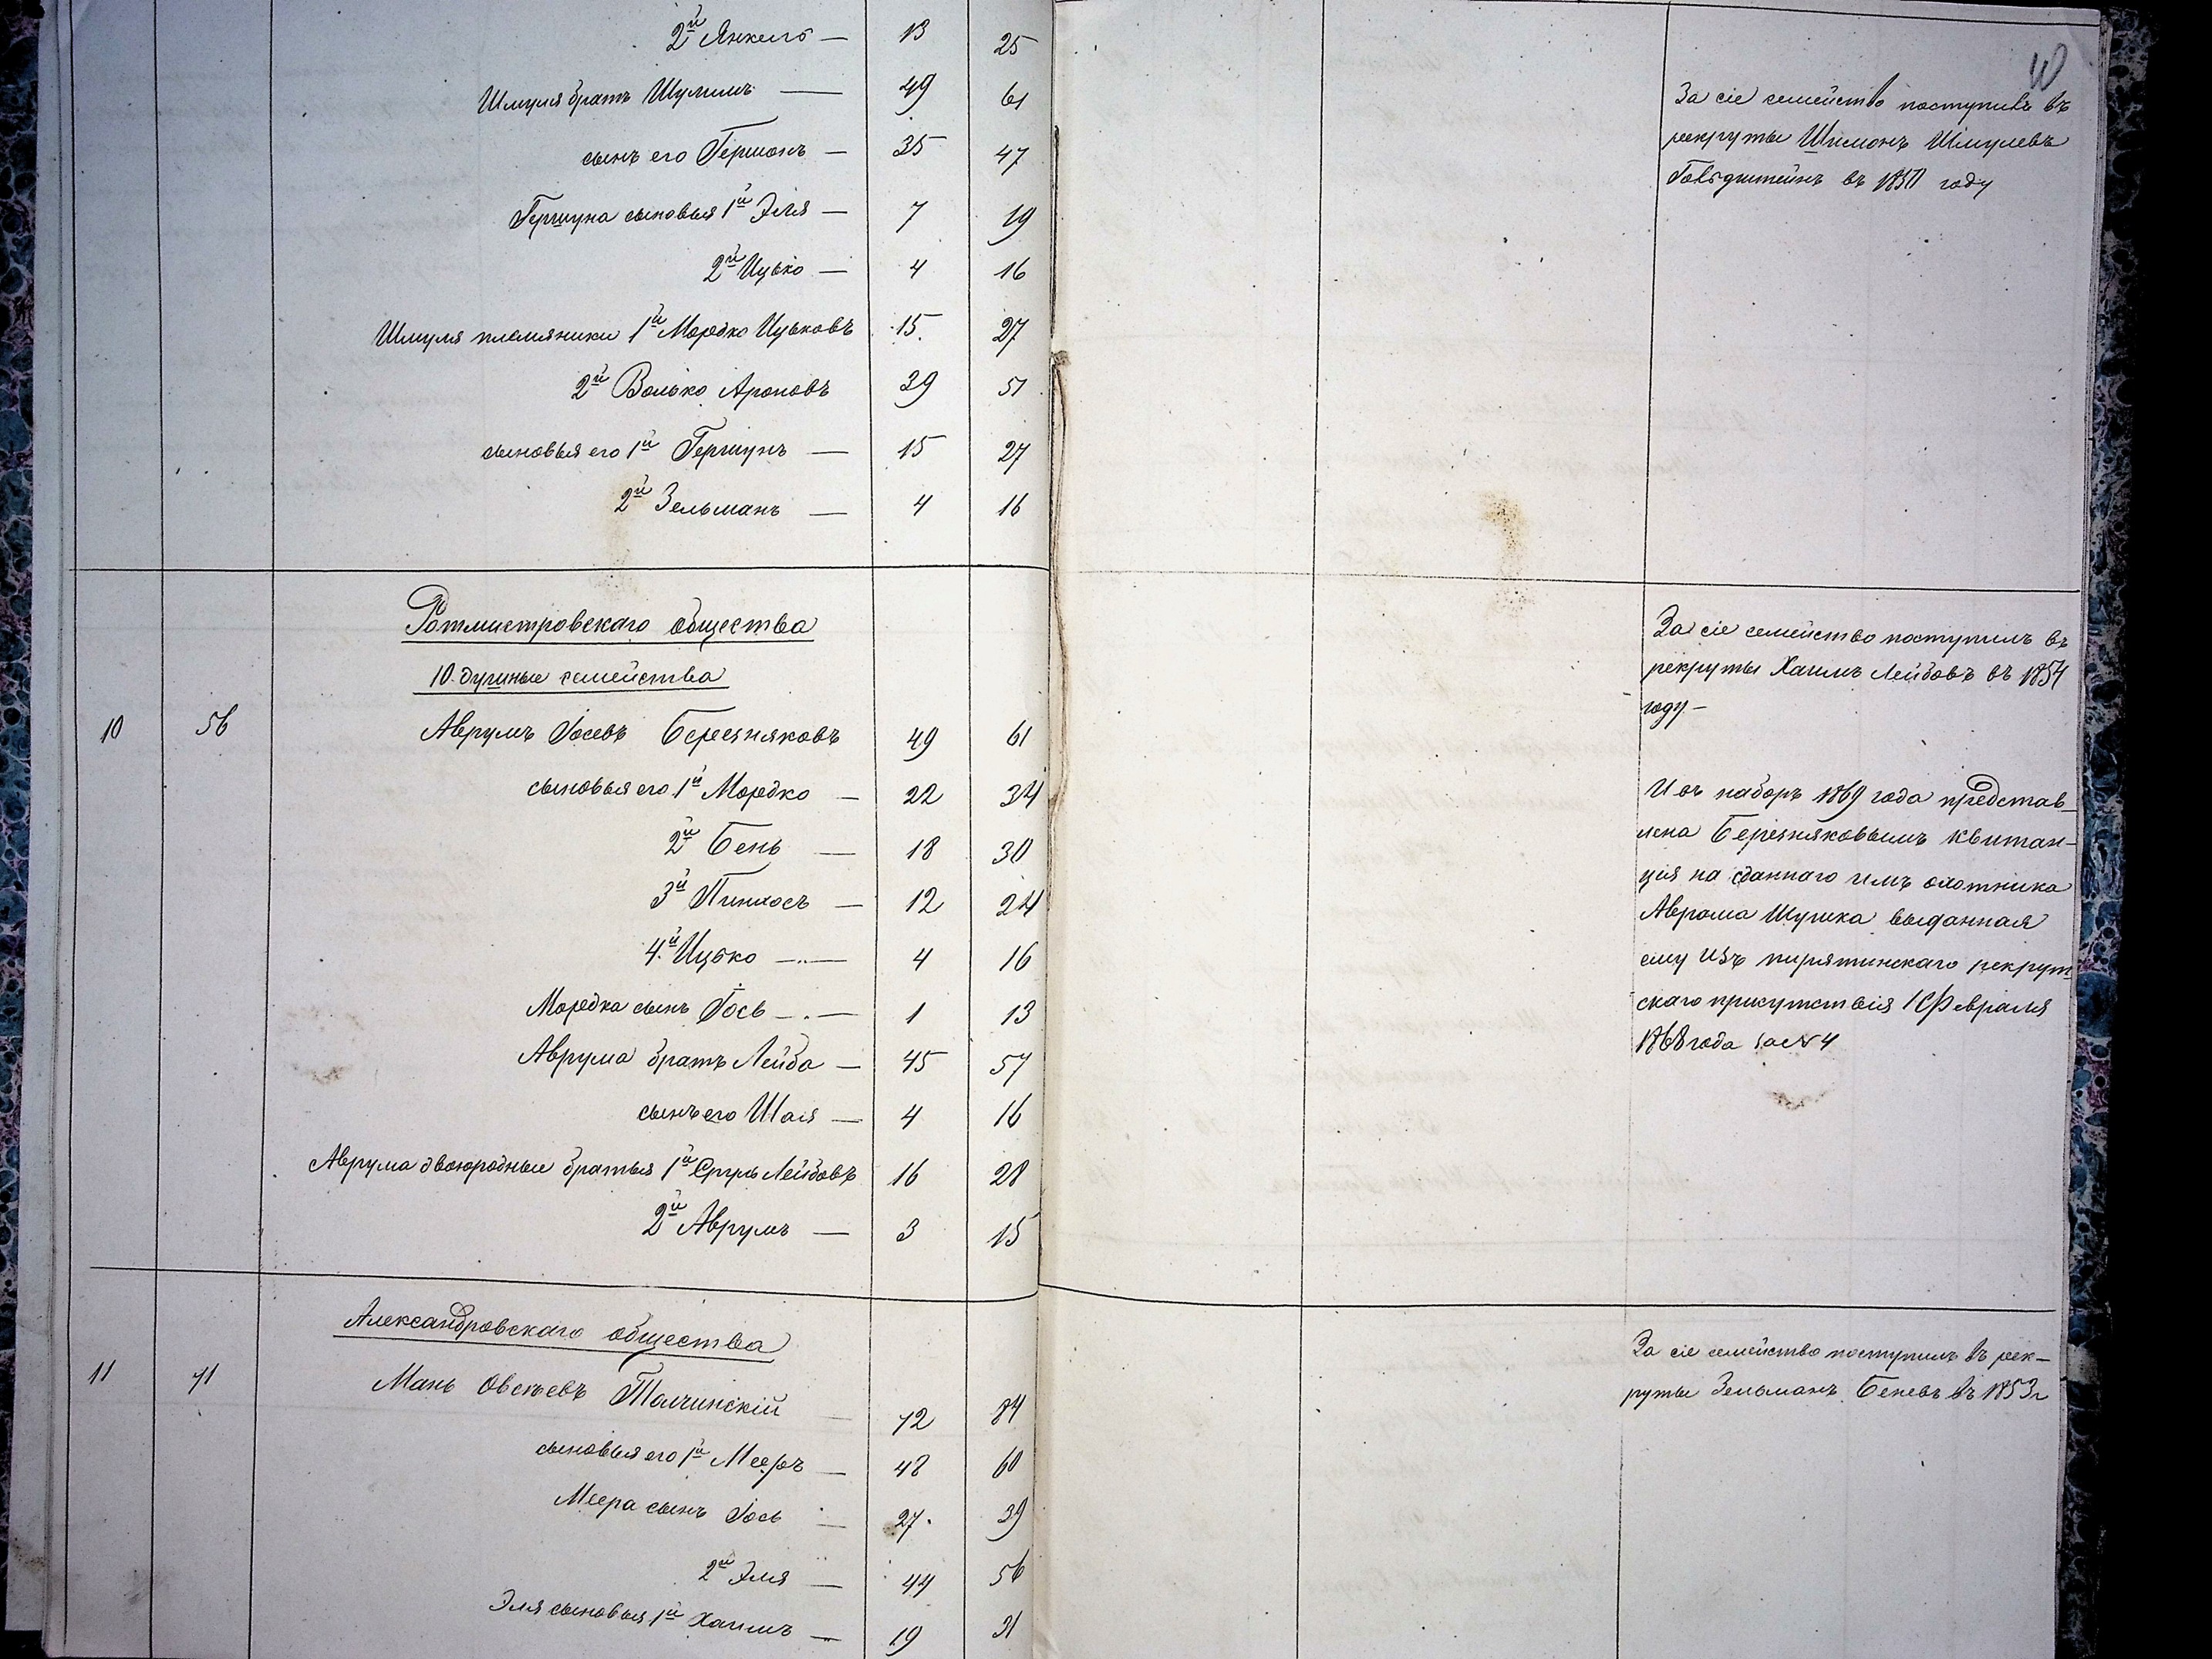 2й Янкель — 13 25
Шмуля братъ Шулимъ — 49 61
сынъ его Гершонъ — 35 47
Гершуна сыновья 1й Эля — 7 19
2й Ицько — 4 16
Шмуля племяники 1й Мордко Ицьковъ 15 27
2й Волько Ароновъ 39 51
сыновья его 1й Гершунъ — 15 27
2й Зельманъ — 4 16
10
За сіе семейство поступилъ въ
рекруты Шимонъ Шмулевъ
Гольдштейнъ въ 1850 году
Ротмистровскаго общества
10. душные семейства
10 56 Аврумъ Іосевъ Березняковъ 49 61
сыновья его 1й Мордко — 22 34
2й Бень — 18 30
3й Пинхосъ — 12 24
4й Ицько — 4 16
Мордка сынъ Іось — 1 13
Аврума братъ Лейба — 45 57
сынъ его Шая — 4 16
Аврума двоюродные братья 1й Сруль Лейбовъ 16 28
2й Аврумъ — 3 15
За сіе семейство поступилъ въ
рекруты Хаимъ Лейбовъ въ 1854
году —
И въ наборъ 1869 года представ-
лена Березняковымъ квитан-
ція на сданнаго имъ охотника
Аврама Шушка выданная
ему изъ пирятинскаго рекрут-
скаго присутствія Февраля
1868 года за № 4
Александровскаго общества
11 71 Мань Овсѣевъ Талчинскій — 72 84
сыновья его 1й Мееръ — 48 60
Меера сынъ Іось — 27. 39
2й Эля — 44 56
Эля сыновья 1й Хаимъ — 19 31
За сіе семейство поступилъ въ рек-
руты Зельманъ Беневъ въ 1853 г